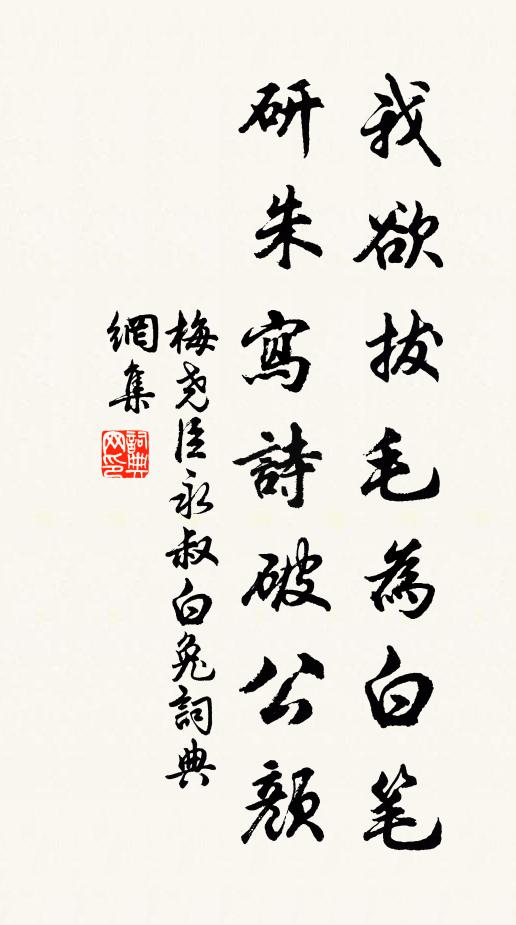 我欲拔毛為白笔
研朱寫詩破公顏
梅尧臣永叔白兔詞典
網集
詞典网印